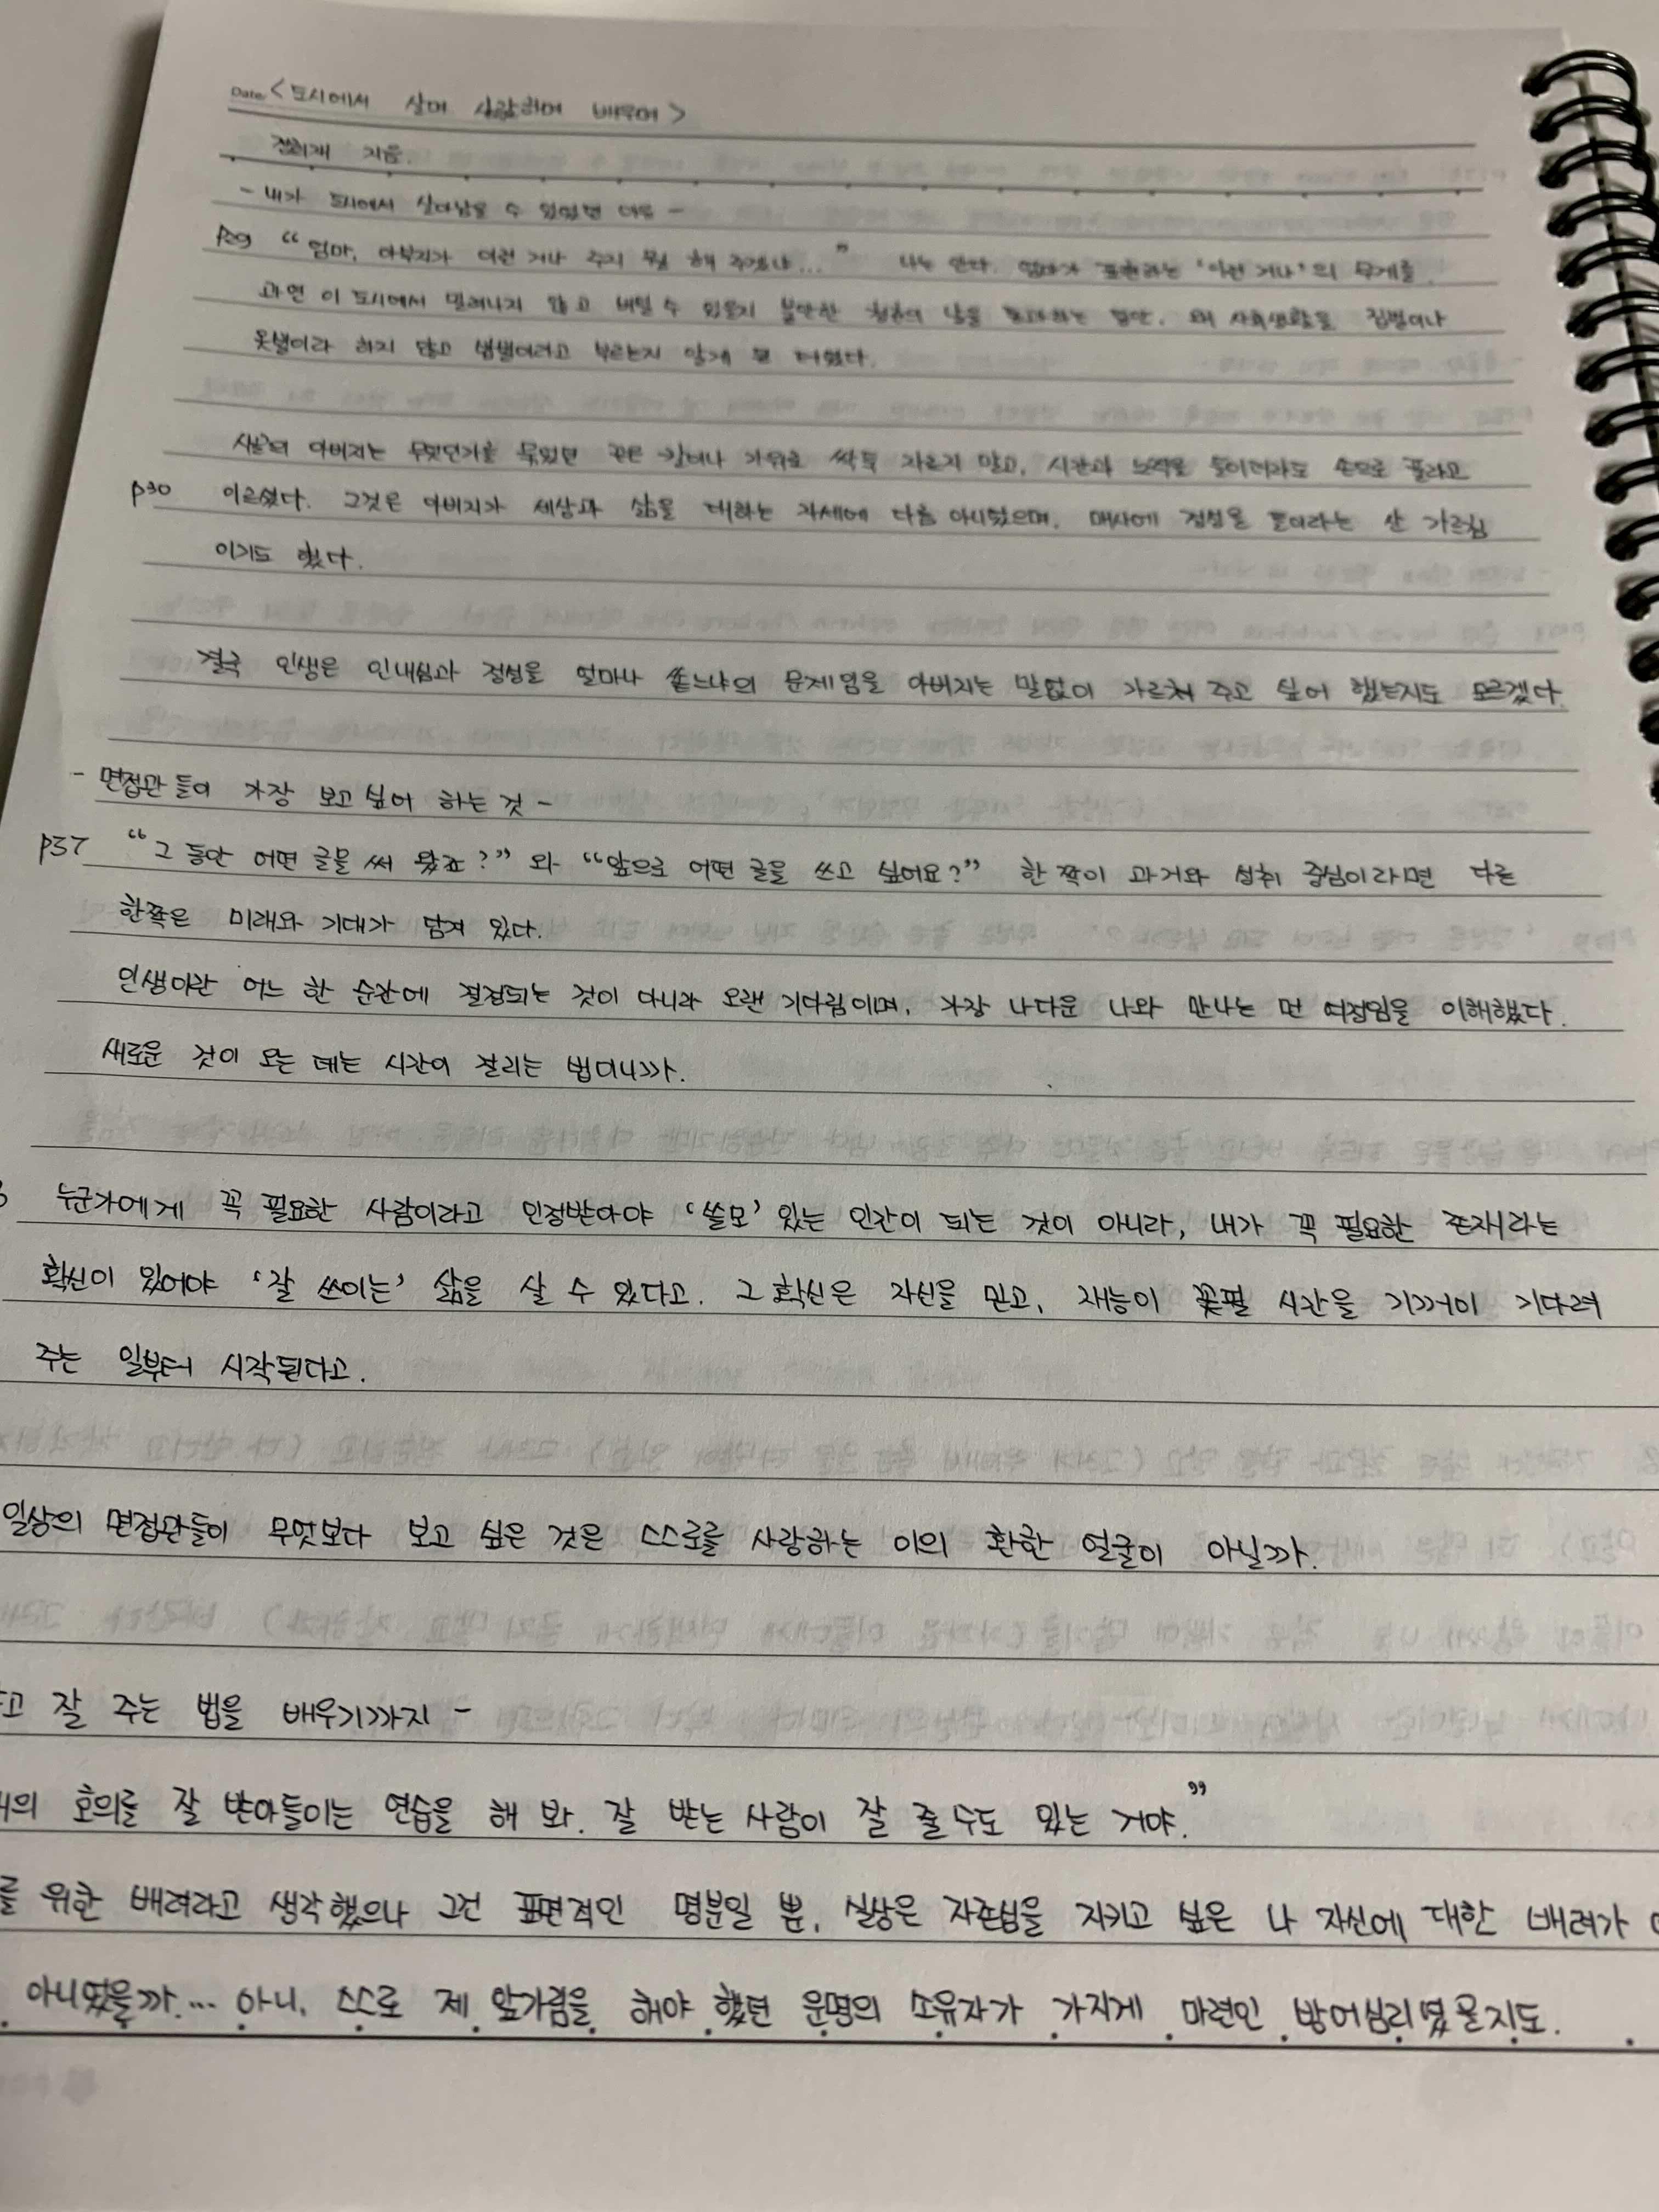 Date <도시에서 살며 사랑하며 배우며>
지음.
- 내가 도시에서 살아남을 수 있었던 이유 -
p29 "엄마, 아부지가 이런 거나 주지 뭘 해 주겠냐..." 나는 안다. 엄마가 표현하는 '이런 거나'의 무게를.
과연 이 도시에서 밀려나지 않고 버틸 수 있을지 불안한 청춘의 날을 통과하는 동안, 왜 사회생활을 집벌이나
옷벌이라 하지 않고 밥벌이라고 부르는지 알게 된 터였다.
시골의 아버지는 무엇인가를 묶었던 끈은 칼이나 가위로 싹둑 자르지 말고, 시간과 노력을 들이더라도 손으로 풀라고
p30 이르셨다. 그것은 아버지가 세상과 삶을 대하는 자세에 다름 아니었으며, 매사에 정성을 들이라는 산 가르침
이기도 했다.
결국 인생은 인내심과 정성을 얼마나 쏟느냐의 문제임을 아버지는 말없이 가르쳐 주고 싶어 했는지도 모르겠다.
- 면접관들이 가장 보고 싶어 하는 것 -
p37 "그 동안 어떤 글을 써 왔죠?" 와 "앞으로 어떤 글을 쓰고 싶어요?" 한 쪽이 과거와 성취 중심이라면 다른
한쪽은 미래와 기대가 담겨 있다.
인생이란 어느 한 순간에 결정되는 것이 아니라 오랜 기다림이며, 가장 나다운 나와 만나는 먼 여정임을 이해했다.
새로운 것이 오는 데는 시간이 걸리는 법이니까.
누군가에게 꼭 필요한 사람이라고 인정받아야 '쓸모' 있는 인간이 되는 것이 아니라, 내가 꼭 필요한 존재라는
확신이 있어야 '잘 쓰이는' 삶을 살 수 있다고. 그 확신은 자신을 믿고, 재능이 꽃필 시간을 기꺼이 기다려
주는 일부터 시작된다고.
일상의 면접관들이 무엇보다 보고 싶은 것은 스스로를 사랑하는 이의 환한 얼굴이 아닐까.
고 잘 주는 법을 배우기까지 -
의 호의를 잘 받아들이는 연습을 해 봐. 잘 받는 사람이 잘 줄 수도 있는 거야."
를 위한 배려라고 생각했으나 그건 표면적인 명분일 뿐, 실상은 자존심을 지키고 싶은 나 자신에 대한 배려가
아니었을까... 아니, 스스로 제 앞가림을 해야 했던 운명의 소유자가 가지게 마련인 방어심리였을지도.